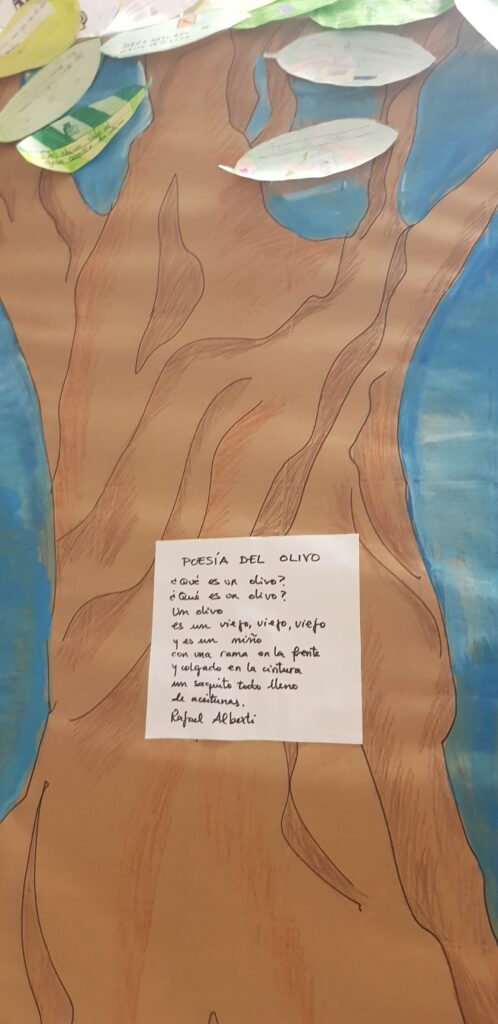 POESÍA DEL OLIVO
¿Qué es un olivo?
¿Qué es un olivo?
Un olivo
es un viejo, viejo, viejo
y es un niño
con una rama en la frente
y colgado en la cintura
un saquito todo lleno
de aceitunas.
Rafael Alberti